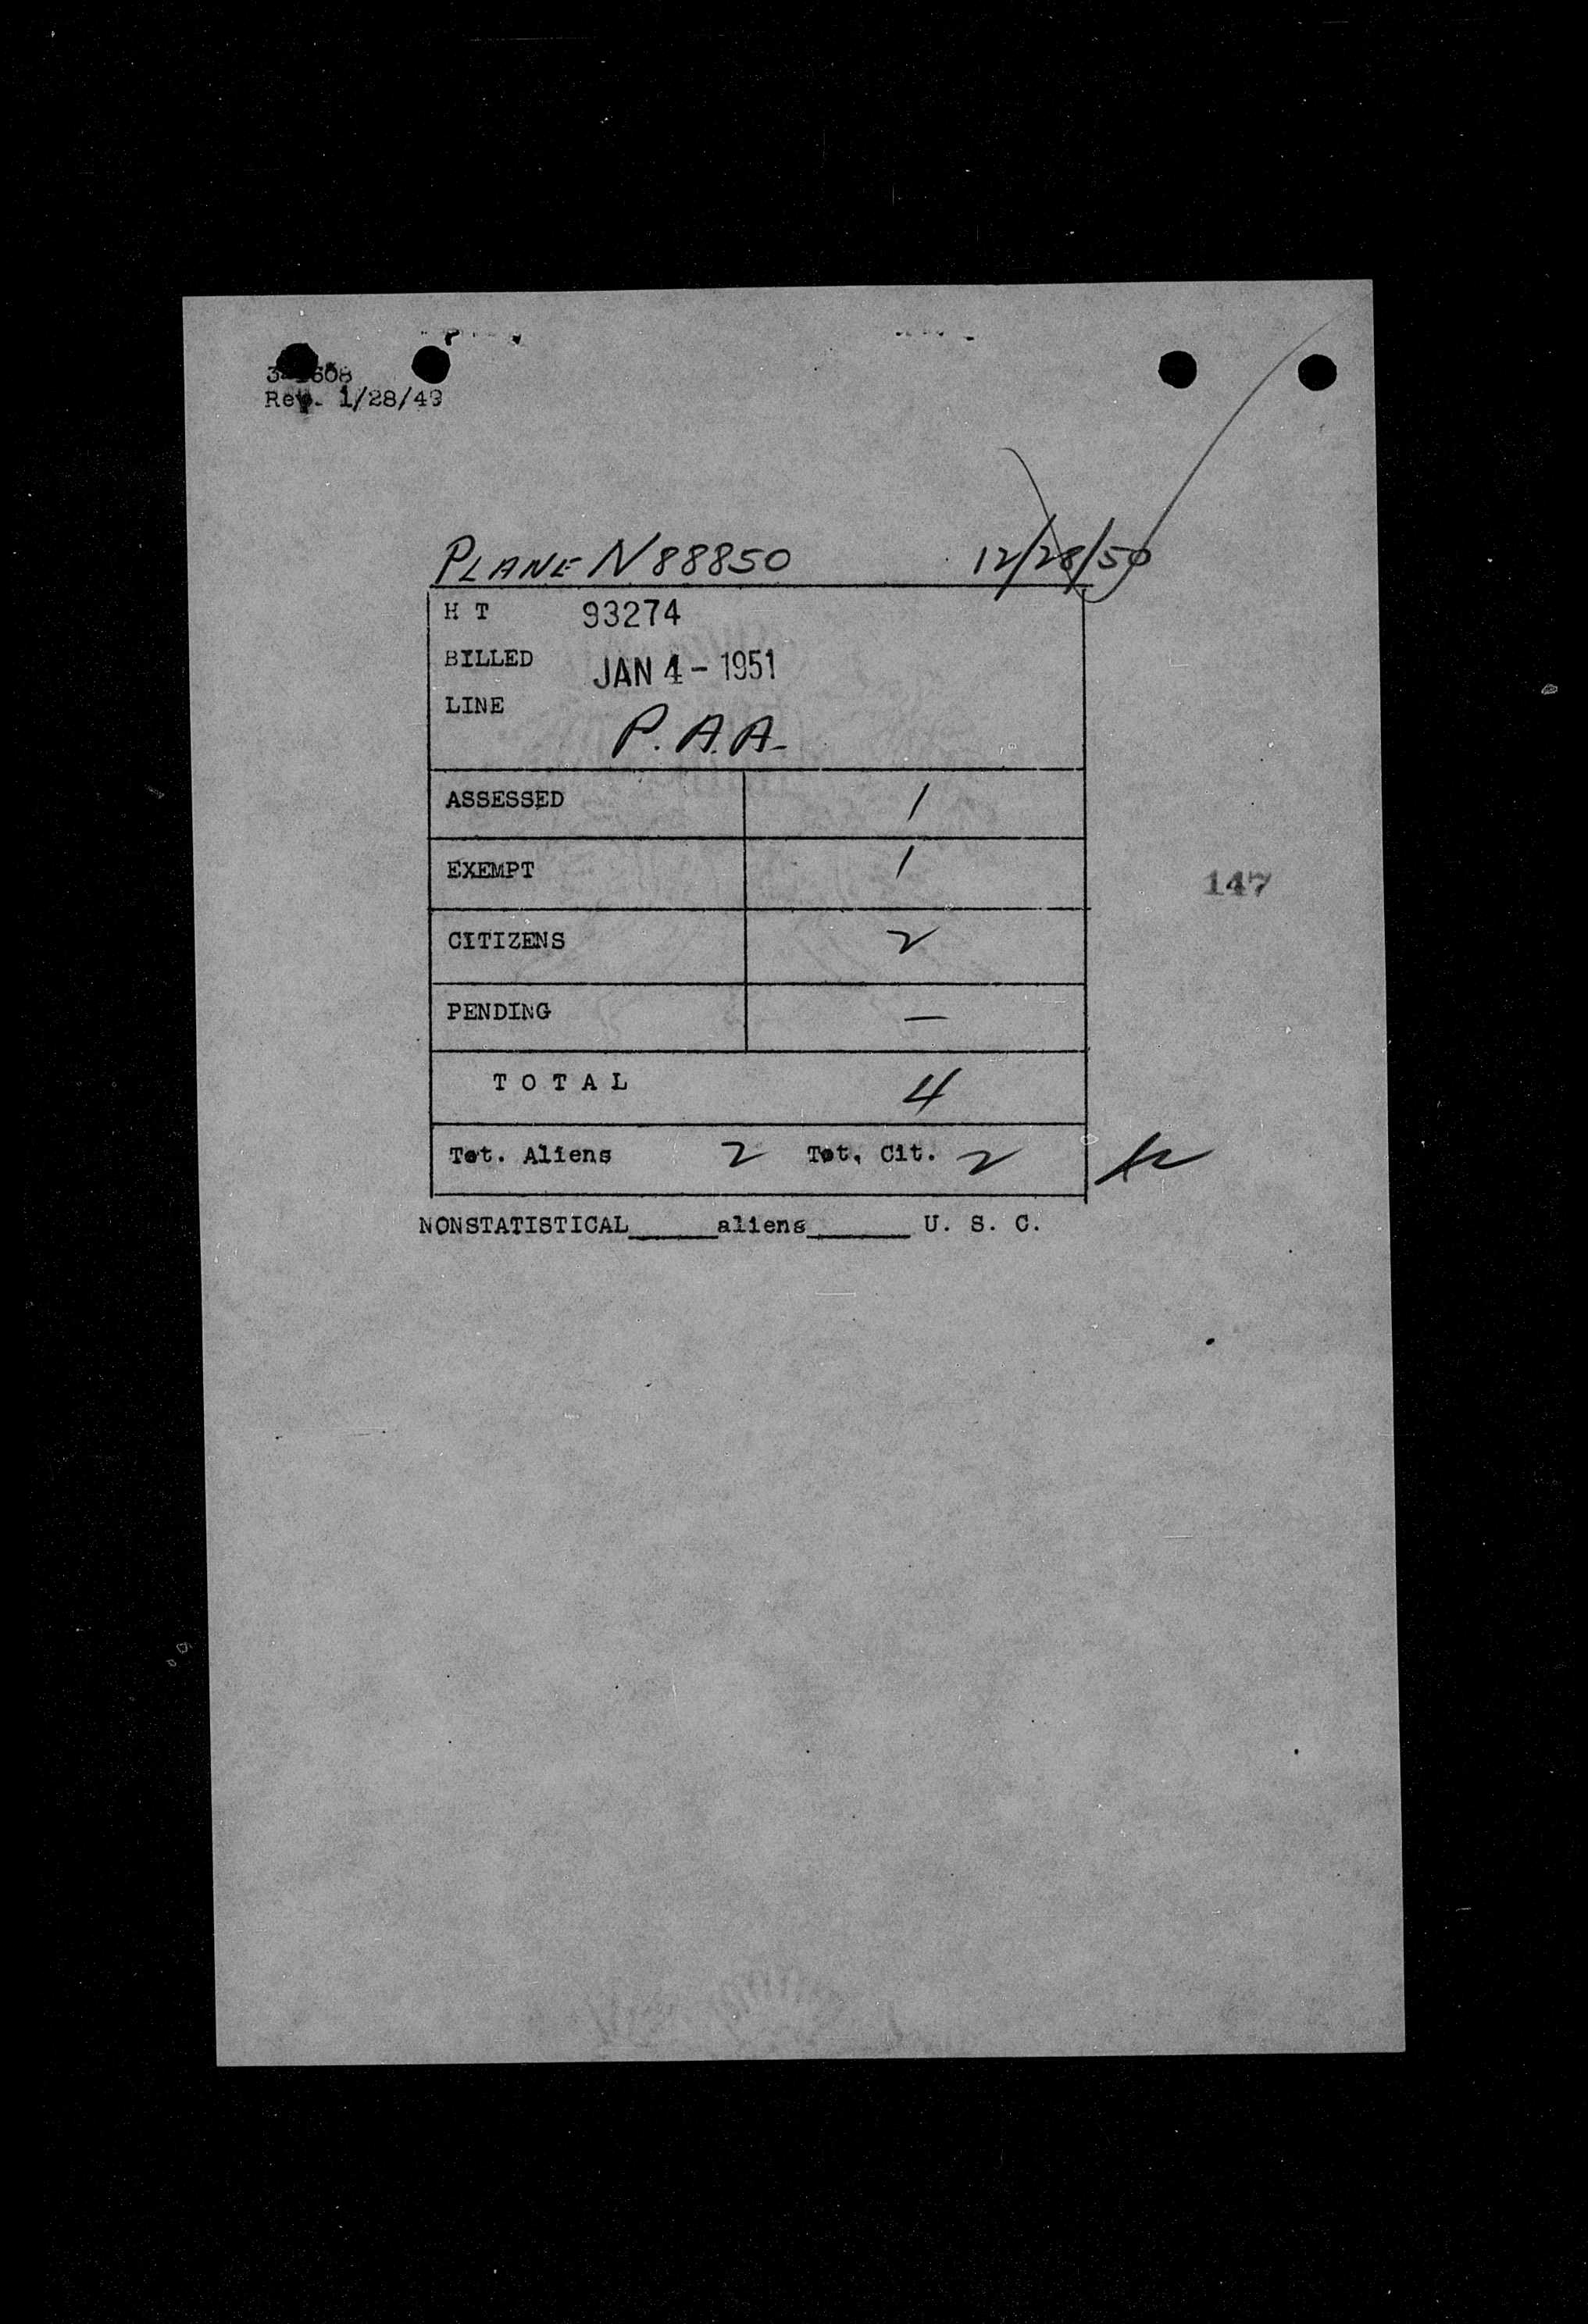 Rev. 1/28/49
PLANE N88850 12/28/50
H T 93274
BILLED JAN 4 - 1951
LINE
P.A.A.
ASSESSED 1
EXEMPT 1
147
CITIZENS 2
PENDING —
T O T A L 4
Tot. Aliens 2 Tot. Cit. 2
NONSTATISTICAL______aliens_______ U. S. C.